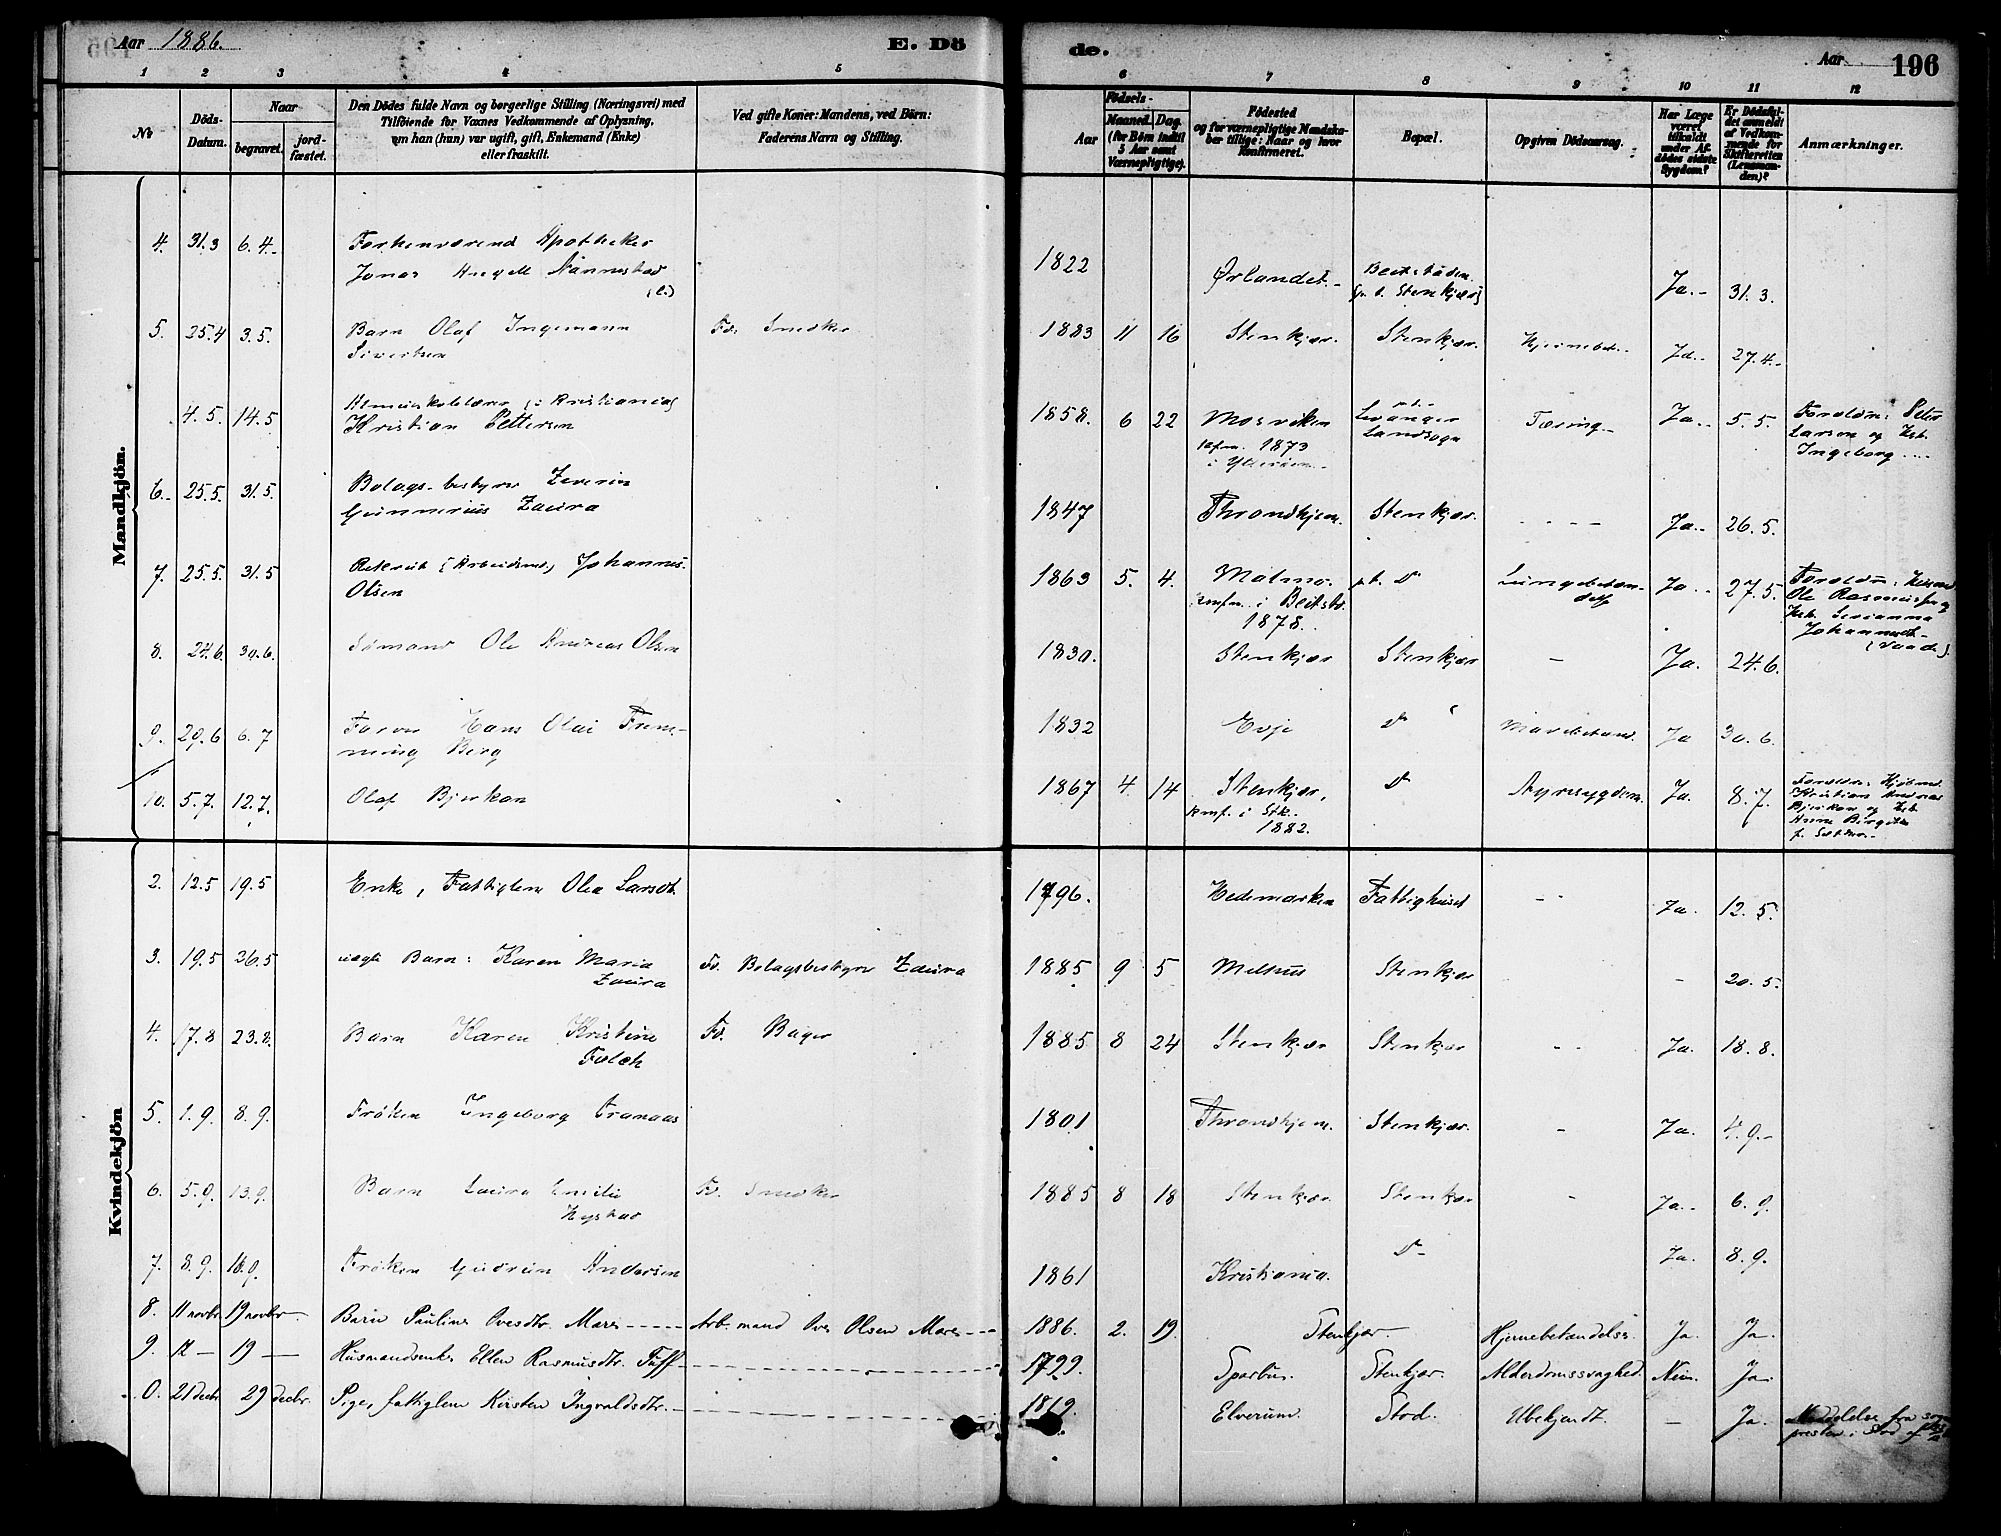 Aar 1886.
E. Dö
de.
Aar
196
1 2 3 4 5 6 7 8 9 10 11 12
No
Döds-
Datum.
Naar
begravet.
jord-
fæstet.
Den Dödes fulde Navn og borgerlige Stilling (Næringsvei) med
Tilföiende for Voxnes Vedkommende af Oplysning,
om han (hun) var ugift, gift, Enkemand (Enke)
eller fraskilt.
Ved gifte Koner: Mandens, ved Börn:
Faderens Navn og Stilling.
Födsels-
Aar
Maaned. Dag.
(for Börn indtil
5 Aar samt
Værnepligtige).
Födested
og for værnepligtige Mandska-
ber tillige: Naar og hvor
konfirmeret.
Bopæl.
Opgiven Dödsaarsag.
Har Læge
været
tilkaldt
under Af-
dödes sidste
Sygdom?
Er Dödsfal-
det anmeldt
af Vedkom-
mende for
Skifteretten
(Lensman-
den)?
Anmærkninger.
Mandkjön.
4. 31.3 6.4. Forhenværend Apotheker
Jonas Angell Nannestad
1822 Ørlandet. Beitstaden Stenkjær Ja. 31.3.
5. 25.4 3.5. Barn Olaf Ingemann
Sivertsen
Fd. Snedker 1883 11 16 Stenkjær. Stenkjær. Hjernebet. Ja. 27.4.
4.5. 14.5 (i Kristiania)
Kristian Pettersen
1858. 6 22 Mosviken
1873
i Ytterøen
Levanger
Landsogn
Tæring Ja. 5.5. Foreldre: Peter
Larsen og Hst.
Ingeborg ....
6. 25.5. 31.5. Bolags-bestyrer Zeverin
Gunnerius Zaura
1847 Throndhjem. Stenkjær. - - - - Ja. 26.5.
7. 25.5. 31.5 Rekrut (Arbeidsmd) Johannes
Olsen
1863 5. 4. Malmo.
konf. i Beitst.
1878.
Lungebetæn-
delse
Ja. 27.5. Foreldre: Husmd
Ole Rasmussen og
Hst.
Johannesdt.
8. 24.6. 30.6. Sømand Ole Andreas Olsen 1830. Stenkjær Stenkjær - Ja. 24.6.
9. 29.6 6.7 Farver Hans Olai Flem-
ming Berg
1832 Evje D Mavebetænd. Ja 30.6.
10. 5.7. 12.7. Olaf Bjerkan 1867 4. 14 Stenkjær,
konf. i Stk.
1882.
D Nyresygdom. Ja. 8.7. Foreldre:
Kristian Andreas
Bjerkan og Hst.
Anna Birgitte
Kvindekjön
2. 12.5 19.5 Enke, Fattiglem Olea Larsdt. 1796. Hedemarken Fattighuset - - Ja. 12.5.
3. 19.5 26.5 uægte Barn: Karen Maria
Zaura
Fd. Bolagsbestyrer Zaura 1885 9 5 Melhus Stenkjær - 20.5.
4. 17.8 23.8. Barn Karen Kristine
Falch
Fd. Bager 1885 8 24 Stenkjær Stenkjær - - Ja. 18.8.
5. 1.9. 8.9. Frøken Ingeborg Tranaas 1801 Throndhjem. Stenkjær. - Ja. 4.9.
6. 5.9. 13.9. Barn Laura Emilie
Hystad
Fd. Snedker 1885 8 18 Stenkjær Stenkjær - Ja. 6.9.
7. 8.9. 16.9. Frøken Gudrun Andersen 1861 Kristiania. D Ja. 8.9.
8. 11 novbr 19 novbr Barn Pauline Ovesdtr. Mære Arb.mand Ove Olsen Mære 1886. 2. 19. Stenkjær. Hjernebetændelse. Ja. Ja.
9. 12 - 19 - Husmandsenke Ellen Rasmusdtr. Tuff 1799. Sparbu. Stenkjær. Alderdomssvaghed. Nei. Ja.
0. 21 decbr 29 decbr. Pige, fattiglem Kirsten Ingvaldsdtr. 1819. Elverum. Stod. Ubekjendt. - Ja. Meddelelse fra sogne-
presten i Stod af